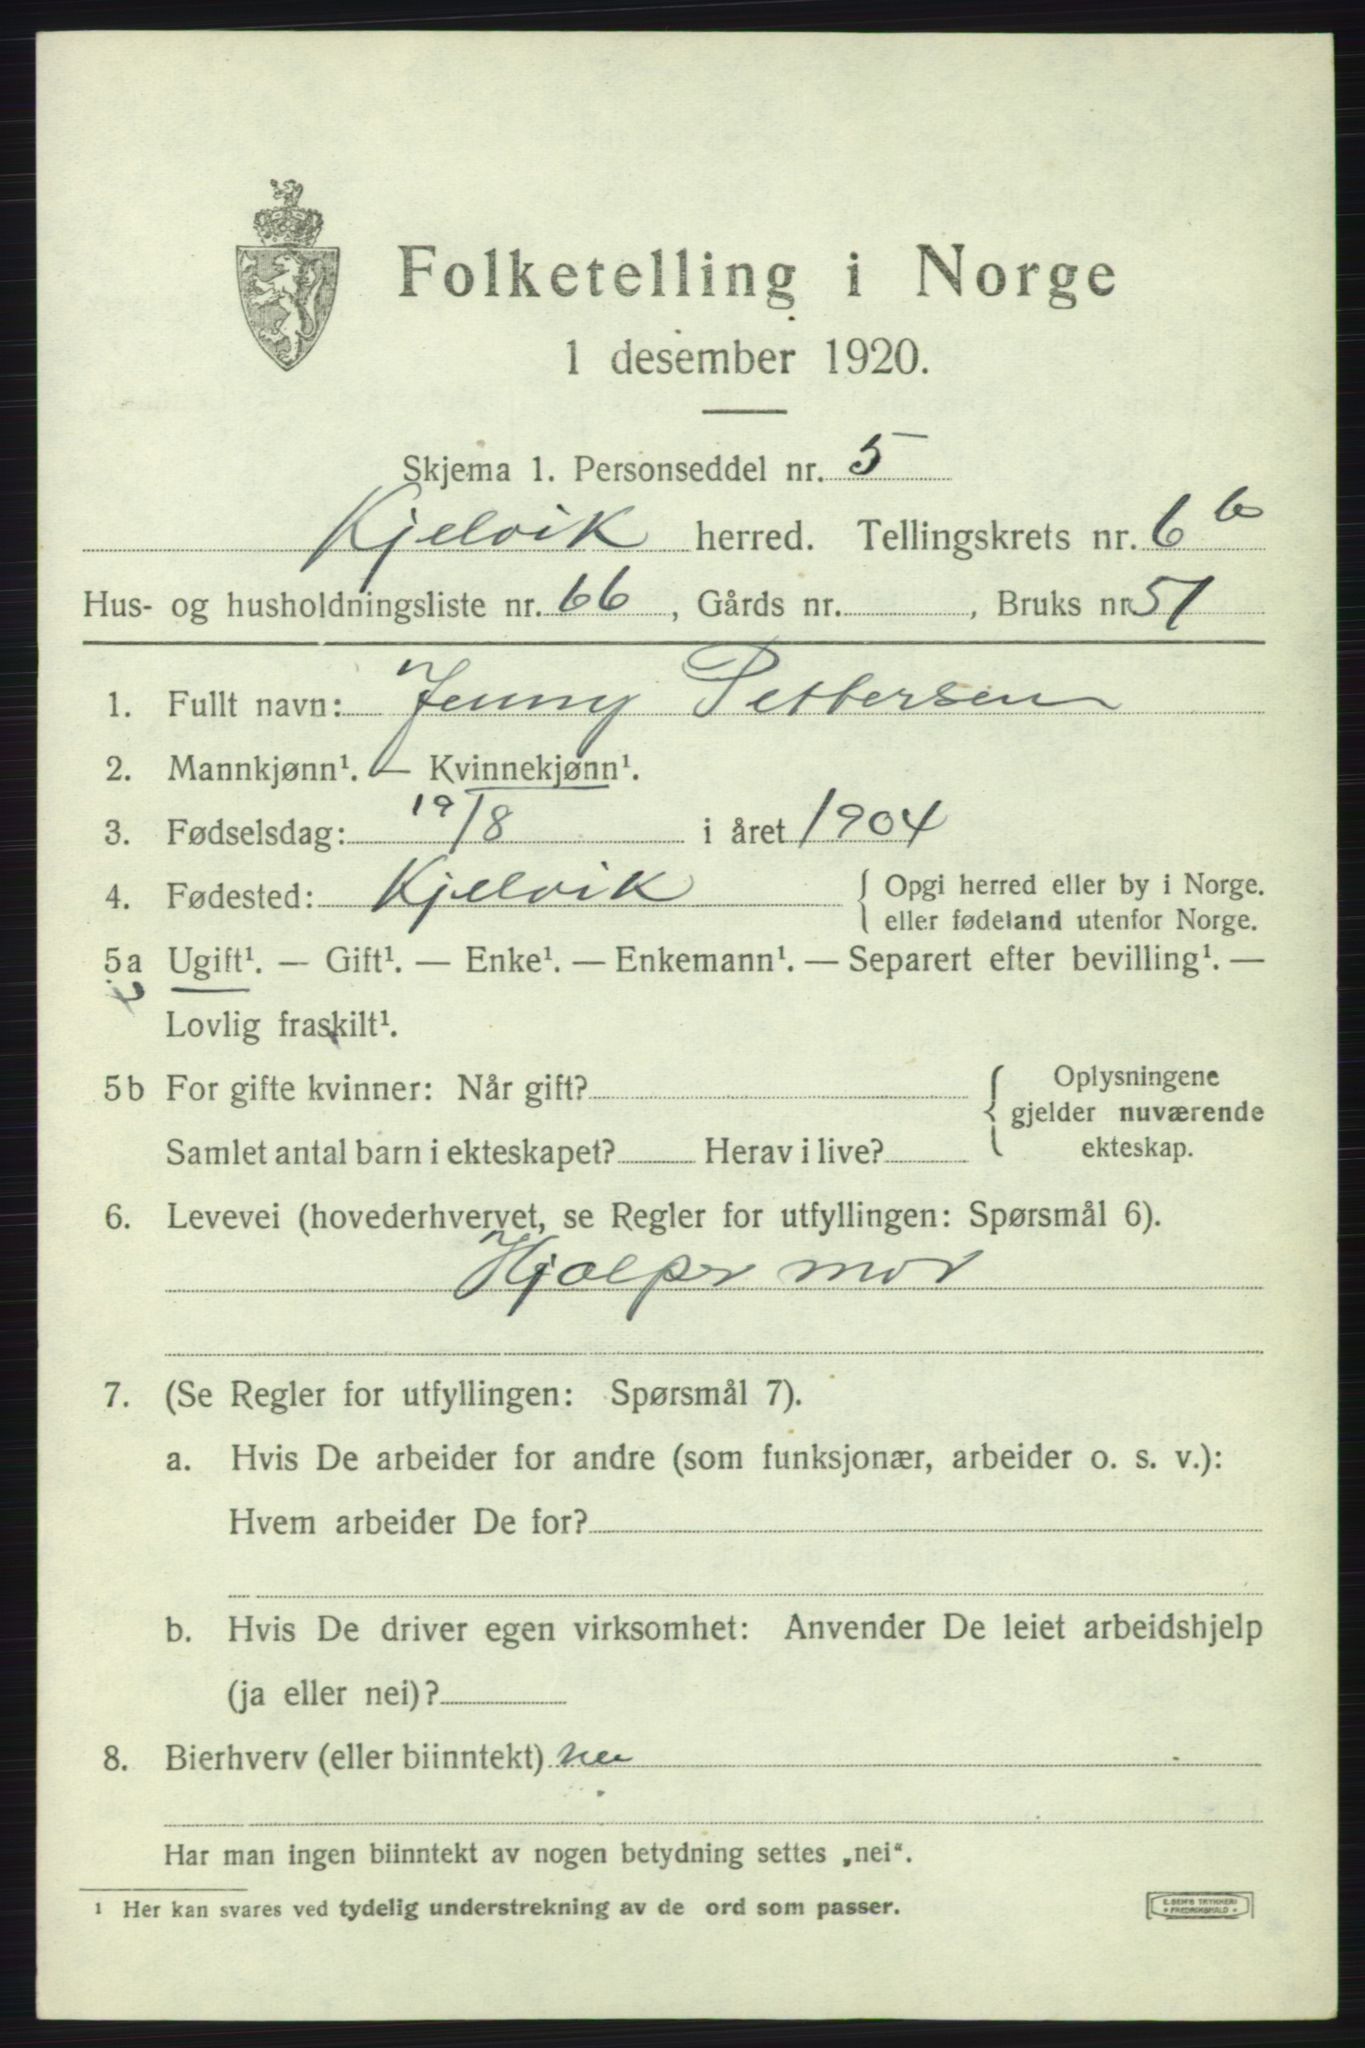 Folketelling i Norge
1 desember 1920.
Skjema 1. Personseddel nr. 5
Kjelvik herred. Tellingskrets nr. 6 b
Hus- og husholdningsliste nr. 66, Gårds nr. , Bruks nr. 51
1. Fullt navn: Jenny Pettersen
2. Mannkjønn¹. — Kvinnekjønn¹.
3. Fødselsdag: 19/8 i året 1904
4. Fødested: Kjelvik { Opgi herred eller by i Norge.
eller fødeland utenfor Norge.
5a Ugift¹. — Gift¹. — Enke¹. — Enkemann¹. — Separert efter bevilling¹. —
Lovlig fraskilt¹.
5b For gifte kvinner: Når gift? { Oplysningene
gjelder nuværende
Samlet antal barn i ekteskapet? Herav i live? ekteskap.
6. Levevei (hovederhvervet, se Regler for utfyllingen: Spørsmål 6).
Hjælper mor
7. (Se Regler for utfyllingen: Spørsmål 7).
a. Hvis De arbeider for andre (som funksjonær, arbeider o. s. v.):
Hvem arbeider De for?
b. Hvis De driver egen virksomhet: Anvender De leiet arbeidshjelp
(ja eller nei)?
8. Bierhverv (eller biinntekt) nei
Har man ingen biinntekt av nogen betydning settes „nei“.
¹ Her kan svares ved tydelig understrekning av de ord som passer.
E. SEM'S TRYKKERI
FREDRIKSHALD